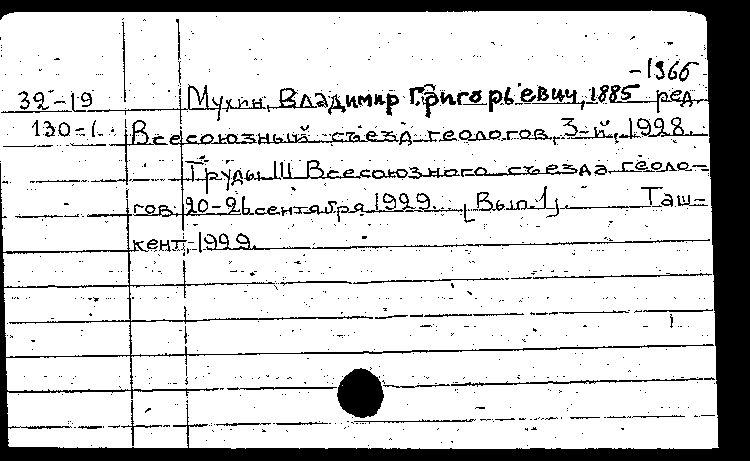 -1966
32-19 Мухин, Владимир Григорьевич, 1885 ред.
130-1. Всесоюзный съезд геологов, 3-й, 1928.
Труды III Всесоюзного съезда геоло-
гов, 20-26 сентября 1929. [Вып. 1]. Таш-
кент, 1929.